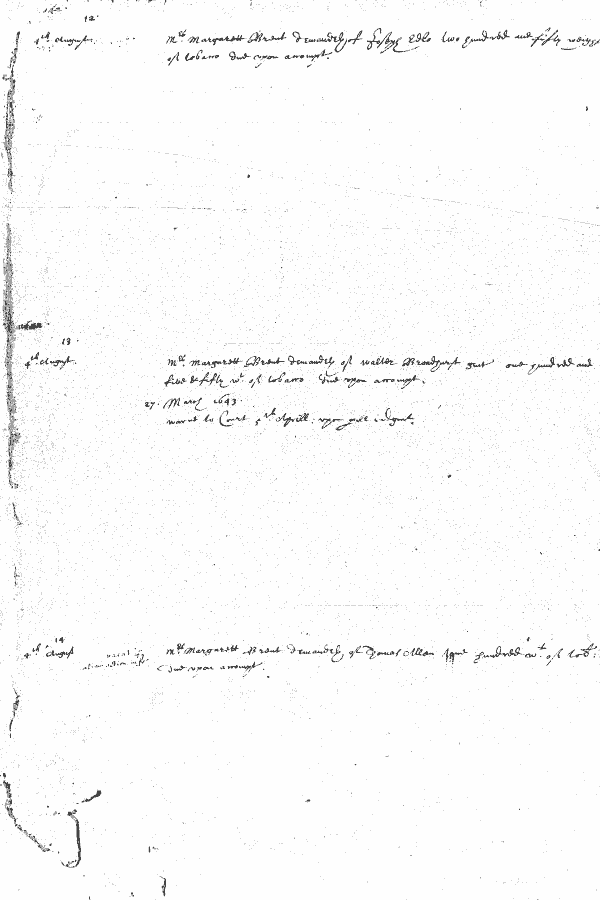 12
4th August
Mrs Margarett Brent demandeth of Joseph Edlo two hundred and fifty weight
of tobacco due upon accompt.
13
4th August.
Mrs Margarett Brent demandeth of walter Broadhurst gent one hundred and
five & fifty wt of tobacco due upon accompt.
27. March 1643.
warnt to Court 5th Aprill. upon
14
4th August
Mrs Margarett Brent demandeth of Thomas Allen hundred wt. of tob.
due upon accompt.